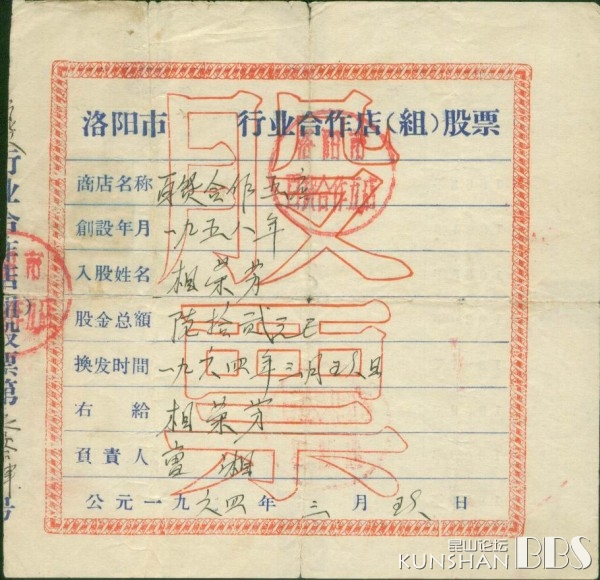 股票
洛阳市 行业合作店(组)股票
商店名称 百货合作五店
創設年月 一九五八年
入股姓名 相荣芳
股金总額 陆拾贰元正
换发时間 一九六四年三月 日
右 給 相荣芳
負責人 曹
公元一九六四年 三 月 日
行业合作店(组)股票第 号
洛阳市
百货合作五店
昆山论坛
KUNSHAN BBS